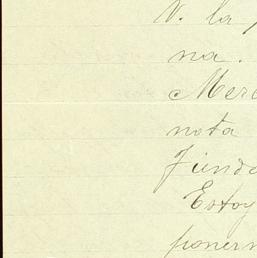 V. la
na.
Merc
nota
Funda
Estoy
ponerm